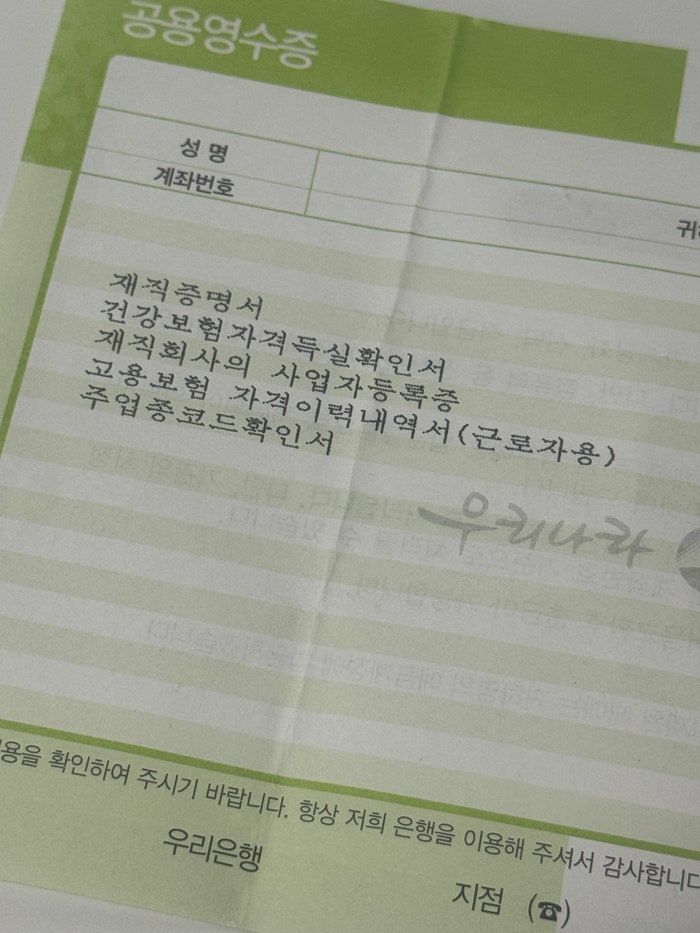 공용영수증
성 명
계좌번호
귀하
재직증명서
건강보험자격득실확인서
재직회사의 사업자등록증
고용보험 자격이력내역서(근로자용)
주업종코드확인서
우리나라
용을 확인하여 주시기 바랍니다. 항상 저희 은행을 이용해 주셔서 감사합니다
우리은행
지점 (☎)